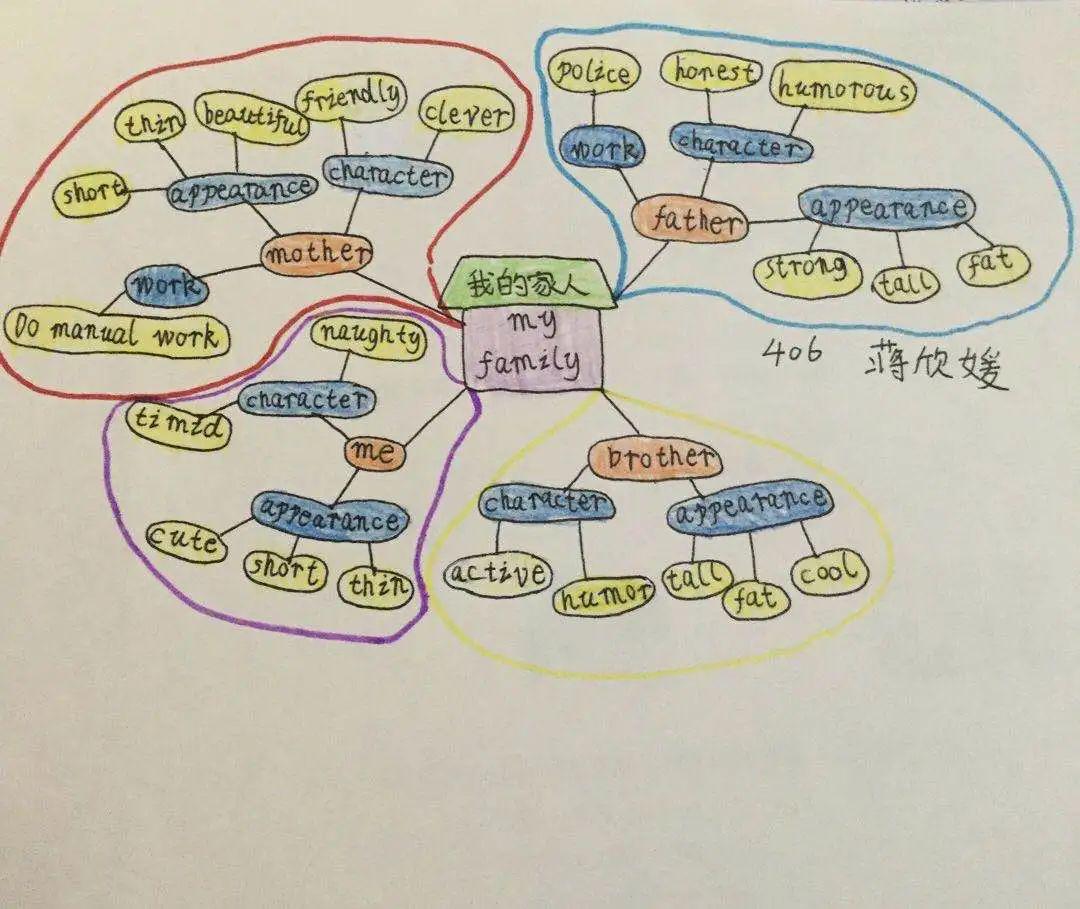 我的家人
my
family
mother
appearance
short
thin
beautiful
character
friendly
clever
work
Do manual work
father
work
police
character
honest
humorous
appearance
strong
tall
fat
406 蒋欣媛
me
character
naughty
timid
appearance
cute
short
thin
brother
character
active
humor
appearance
tall
fat
cool